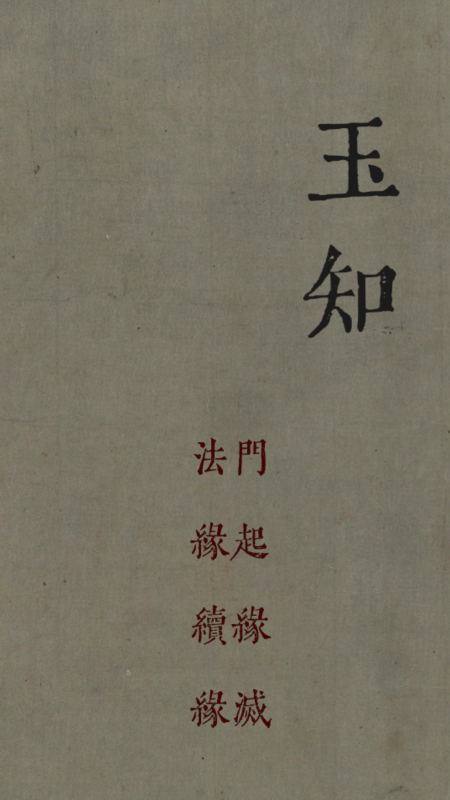 玉知
法門
緣起
續緣
緣滅